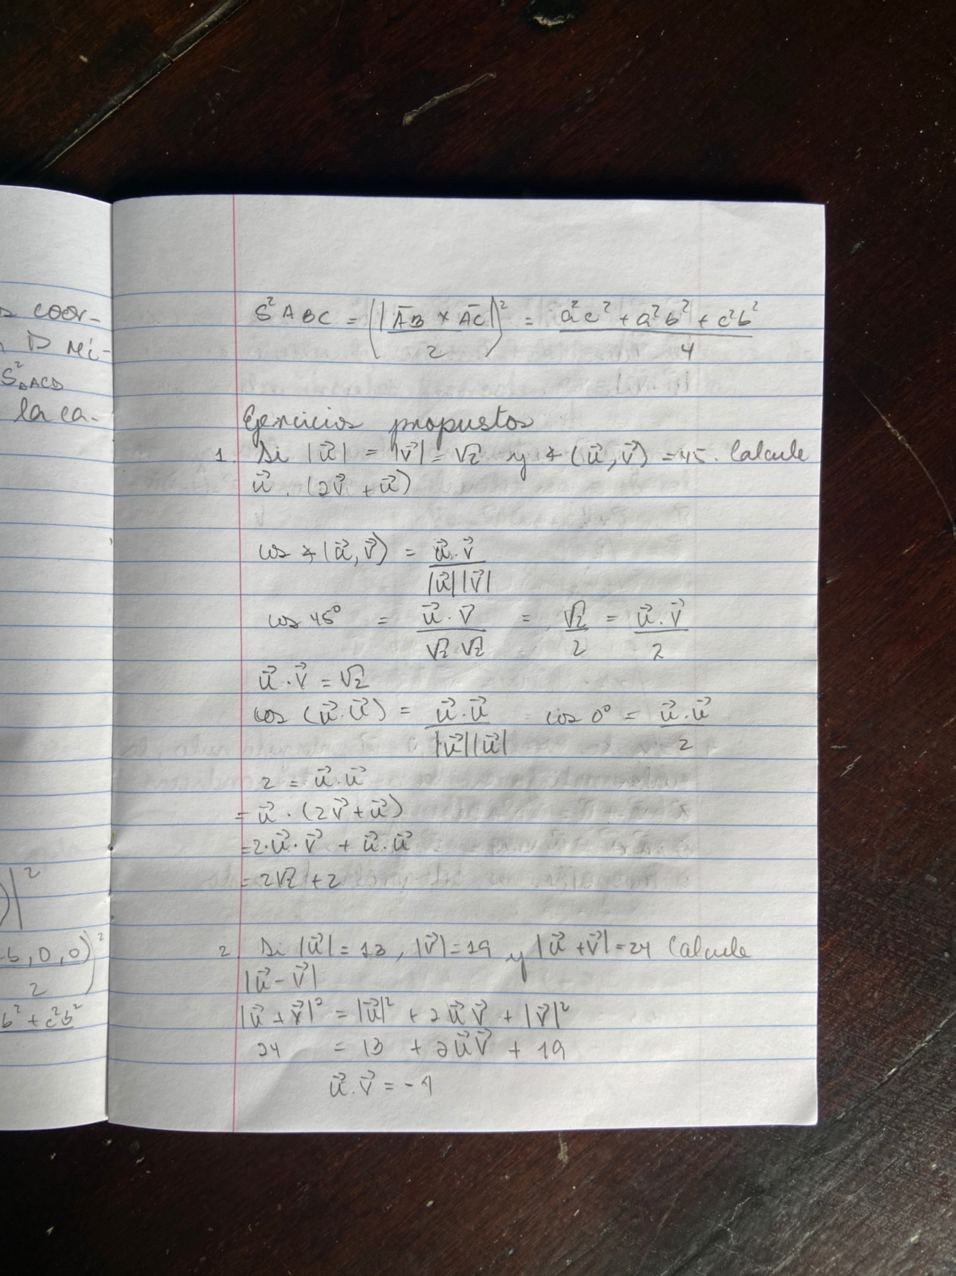 s coor-
D mi-
S²ACD
la ca-
)|²
-b, 0, 0)²
2
b² + c²b²
S²ABC = (|AB × AC|/2)² = (a²c² + a²b² + c²b²)/4
Ejercicios propustos
1. Si |u⃗| = |v⃗| = √2 y ∡(u⃗, v⃗) = 45. Calcule
u⃗ . (2v⃗ + u⃗)
cos ∡(u⃗, v⃗) = u⃗.v⃗ / |u⃗||v⃗|
cos 45° = u⃗.v⃗ / √2 √2 = √2/2 = u⃗.v⃗/2
u⃗.v⃗ = √2
cos (u⃗.u⃗) = u⃗.u⃗ / |u⃗||u⃗| cos 0° = u⃗.u⃗/2
2 = u⃗.u⃗
= u⃗ . (2v⃗ + u⃗)
= 2.u⃗.v⃗ + u⃗.u⃗
= 2√2 + 2
2. Si |u⃗| = 13, |v⃗| = 19 y |u⃗ + v⃗| = 24 Calcule
|u⃗ - v⃗|
|u⃗ + v⃗|² = |u⃗|² + 2u⃗v⃗ + |v⃗|²
24 = 13 + 2u⃗v⃗ + 19
u⃗.v⃗ = -4